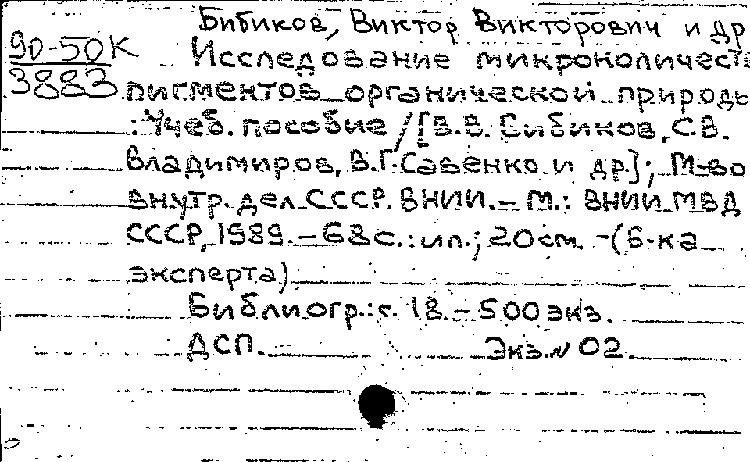 Бибиков, Виктор Викторович и др
90-50К
3883
Исследование микроколичеств
пигментов органической природы
: Учеб. пособие / [В.В. Бибиков, С.В.
Владимиров, В.Г. Савенко и др.]; М-во
внутр. дел СССР. ВНИИ. – М.: ВНИИ МВД
СССР, 1989. – 68 с.: ил.; 20 см. – (Б-ка
эксперта).
Библиогр.: с. 18. – 500 экз.
ДСП. Экз. № 02.